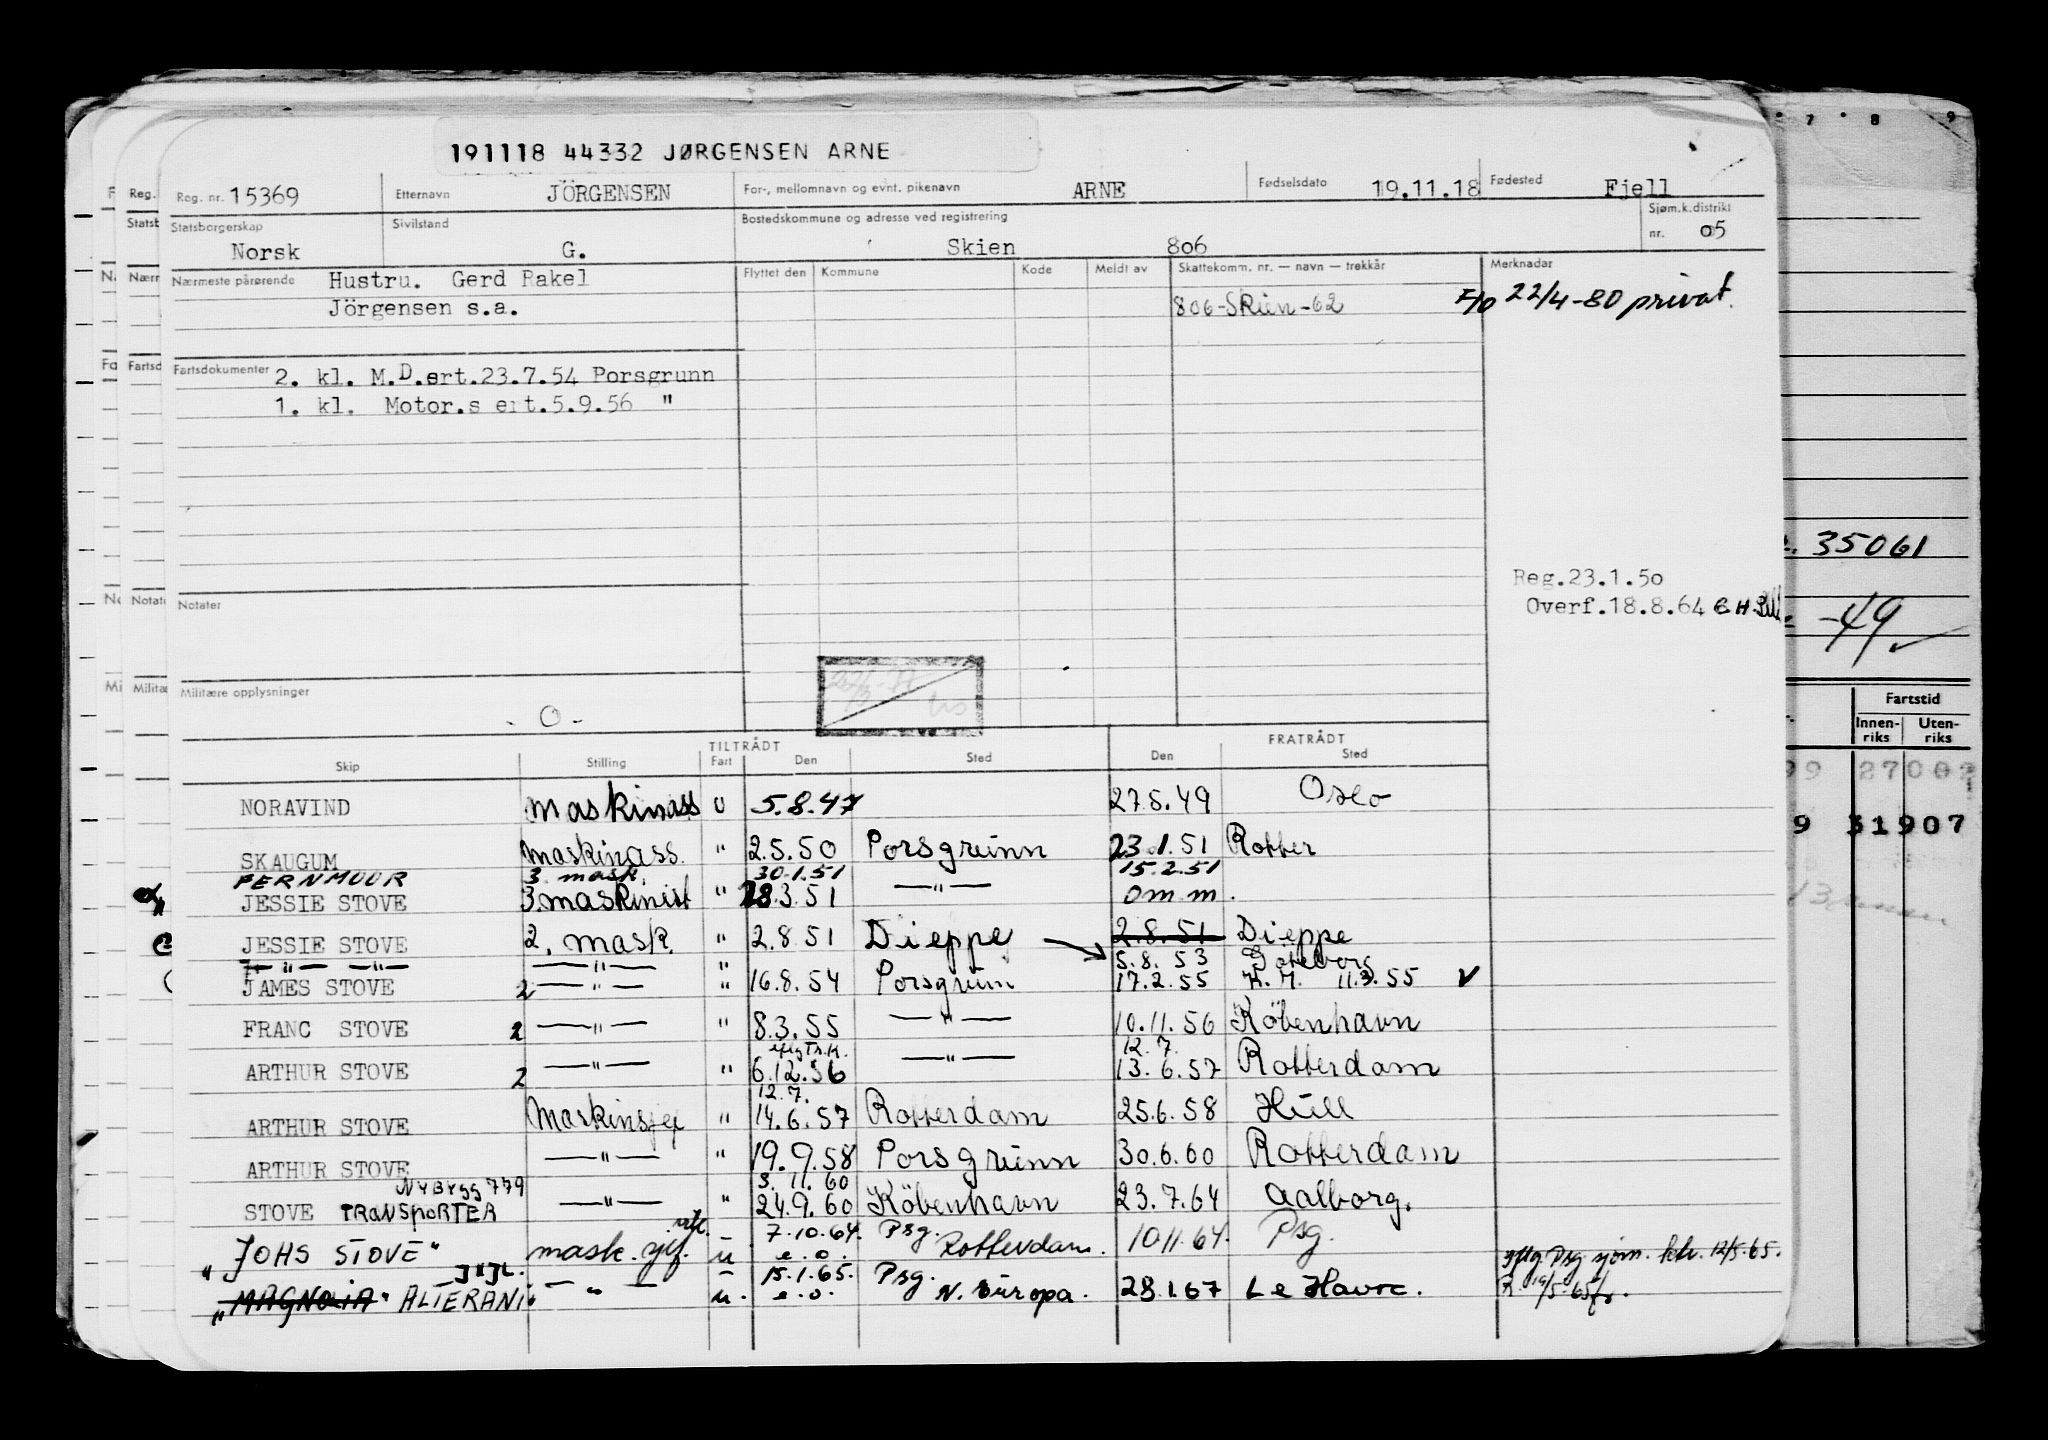 191118 44332 JØRGENSEN ARNE
Reg. nr. 15369 Etternavn JÖRGENSEN For-, mellomnavn og evnt. pikenavn ARNE Fødselsdato 19.11.18 Fødested Fjell
Statsborgerskap Norsk Sivilstand G. Bostedskommune og adresse ved registrering Skien 806 Sjøm.k.distrikt nr. 05
Nærmeste pårørende Hustru. Gerd Rakel
Jörgensen s.a.
Flyttet den Kommune Kode Meldt av Skattekomm. nr. — navn — trekkår Merknader
806-Skien-62 F/o 22/4-80 privat.
Fartsdokumenter 2. kl. M.D.ert.23.7.54 Porsgrunn
1. kl. Motor.s ert.5.9.56 "
Reg.23.1.50
Overf.18.8.64
Notater
Militære opplysninger
- O -
TILTRÅDT FRATRÅDT
Skip Stilling Fart Den Sted Den Sted
NORAVIND Maskinass u 5.8.47 27.5.49 Oslo
SKAUGUM Maskinass. " 2.5.50 Porsgrunn 23.1.51 Rotter
FERNMOOR 3. mask. 30.1.51 15.2.51
JESSIE STOVE 3.maskinist " 28.3.51 —"— omm.
JESSIE STOVE 2. mask. " 2.8.51 Dieppe 2.8.51 Dieppe
—"— —"— —"— " 5.8.53 Göteborg
JAMES STOVE 2 —"— " 16.8.54 Porsgrunn 17.2.55 K.M. 11.3.55 V
FRANC STOVE 2 —"— " 8.3.55 —"— 10.11.56 Köbenhavn
iflg Tr.k. 12.7.
ARTHUR STOVE 2 —"— " 6.12.56 —"— 13.6.57 Rotterdam
12.7.
ARTHUR STOVE Maskinsjef " 14.6.57 Rotterdam 25.6.58 Hull
ARTHUR STOVE —"— " 19.9.58 Porsgrunn 30.6.60 Rotterdam
NYBYGG 779 3.11.60
STOVE TRANSPORTER —"— " 24.9.60 Köbenhavn 23.7.64 Aalborg.
"JOHS STOVE" mask. sjf. u 7.10.64. e.o. Psg. Rotterdam. 10.11.64. Psg.
"MAGNOLIA" ALTERANI" — " — u. 15.1.65. e.o. Psg. N. Europa. 28.1.67 Le Havre.
Iflg. Psg sjøm. ktr. 12/5-65.
Reg.
Statsb
Nærm
Fartsd
Notate
Militæ
7 8 9
35061
-49
Fartstid
Innen-riks Uten-riks
9 31907